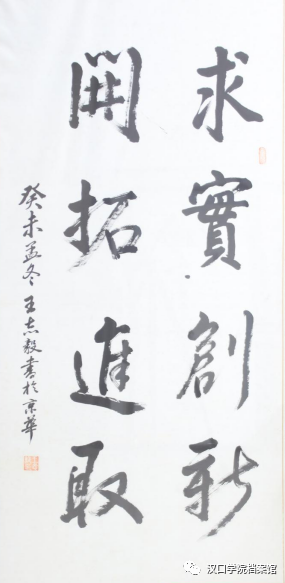 求實創新
開拓進取
癸未孟冬王志毅書於京華
汉口学院档案馆